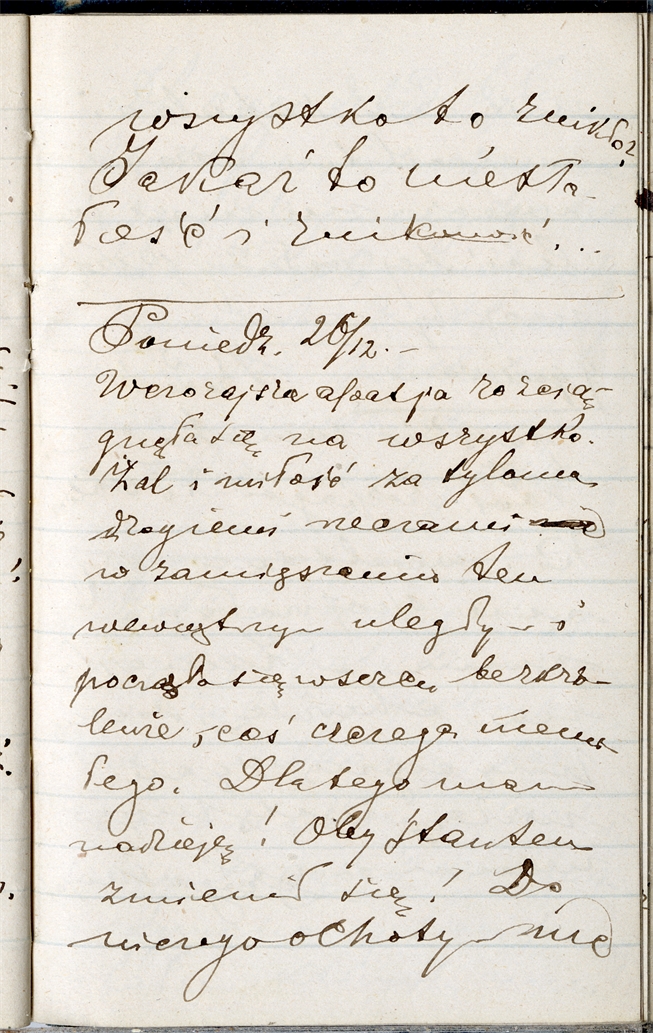 wszystko to znikło?
Jakaś to niesta-
łość i znikomość...
Poniedz. 20/12. –
Wczorajsza apatja rozcią-
gnęła się na wszystko.
Żal i miłość za tyloma
drogiemi rzeczami
w zamięszaniu tem
wewnętrzym uległy – i
poczęło się w sercu bezkró-
lewie, coś czczego niemi-
łego. Dlatego mam
nadzieję! Oby stan ten
zmienił się! Do
niczego ochoty – nie